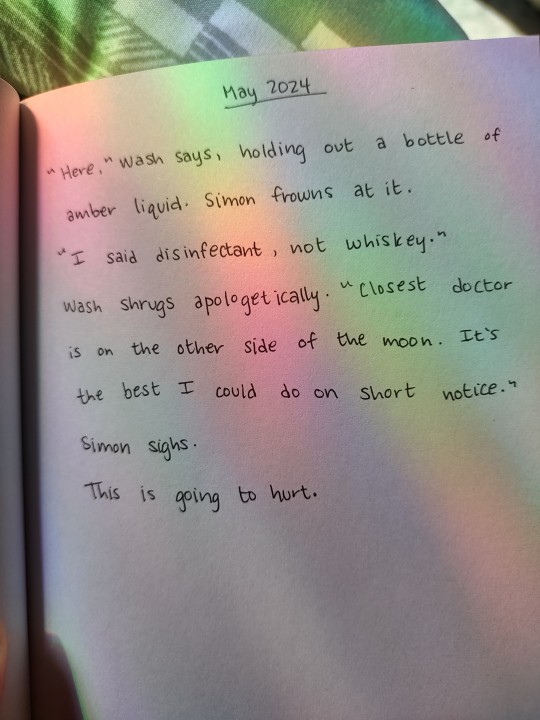 May 2024
"Here," Wash says, holding out a bottle of
amber liquid. Simon frowns at it.
"I said disinfectant, not whiskey."
Wash shrugs apologetically. "Closest doctor
is on the other side of the moon. It's
the best I could do on short notice."
Simon sighs.
This is going to hurt.